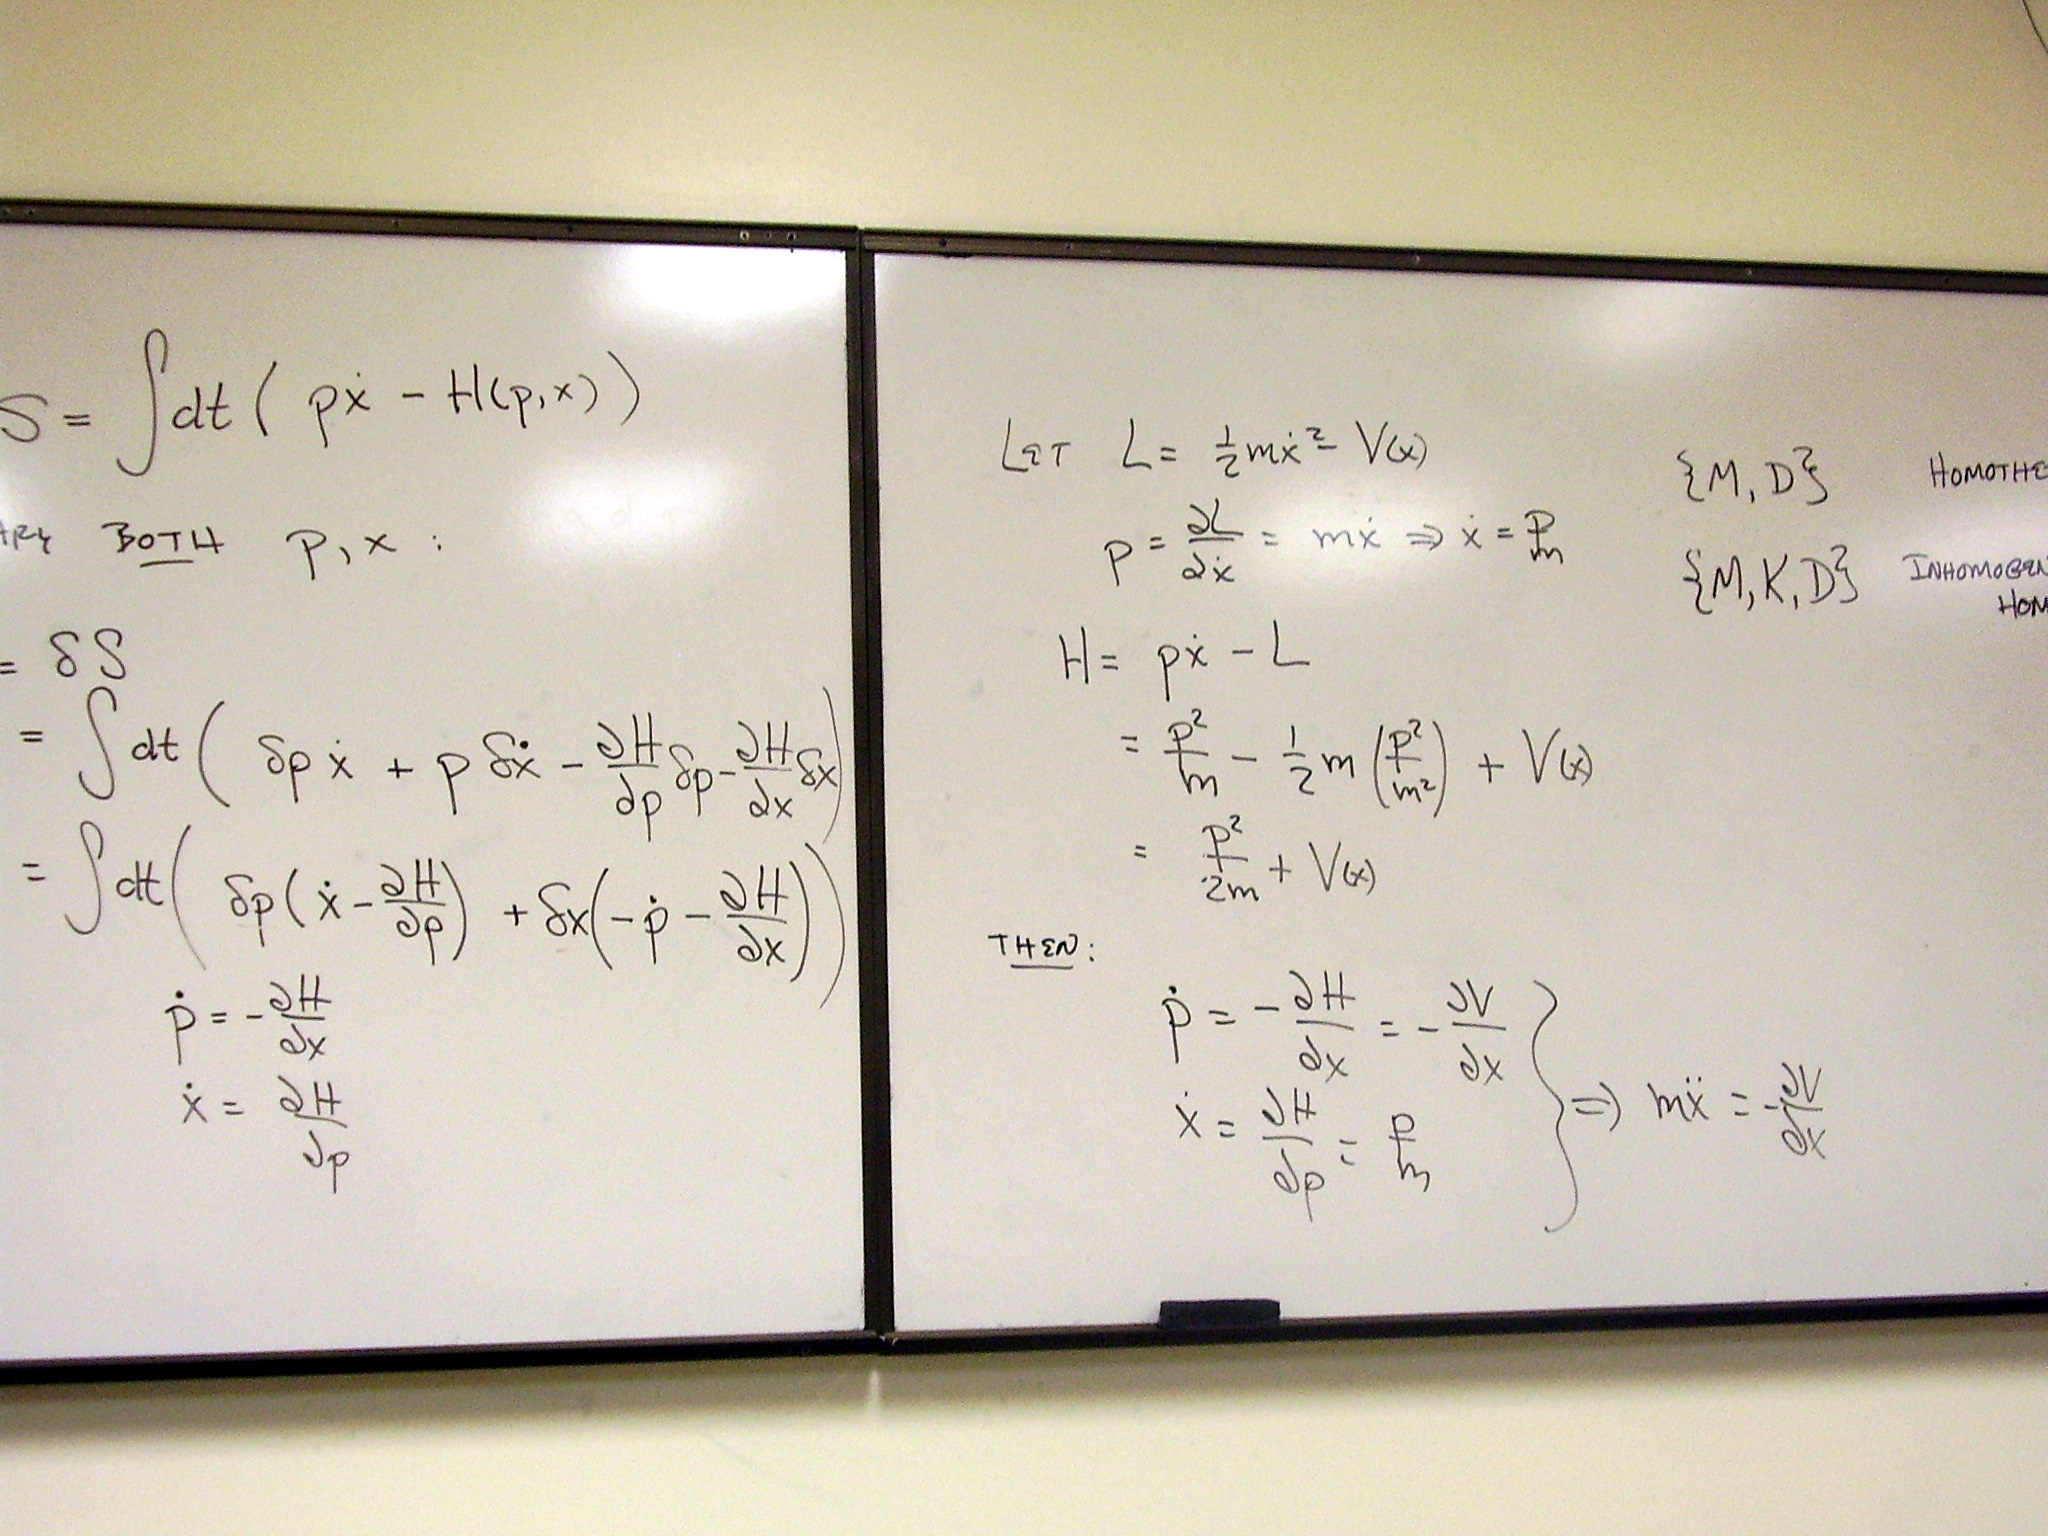 S = ∫dt( pẋ - H(p,x) )
BOTH p, x :
= δS
= ∫dt( δp ẋ + p δẋ - ∂H/∂p δp - ∂H/∂x δx )
= ∫dt( δp( ẋ - ∂H/∂p ) + δx( -ṗ - ∂H/∂x ) )
ṗ = - ∂H/∂x
ẋ = ∂H/∂p
LET L = 1/2 mẋ² - V(x)
p = ∂L/∂ẋ = mẋ ⇒ ẋ = p/m
H = pẋ - L
= p²/m - 1/2 m (p²/m²) + V(x)
= p²/2m + V(x)
THEN:
ṗ = - ∂H/∂x = - ∂V/∂x
ẋ = ∂H/∂p = p/m } ⇒ mẍ = - ∂V/∂x
{M, D} HOMOTHE
{M, K, D} INHOMOGEN
HOM